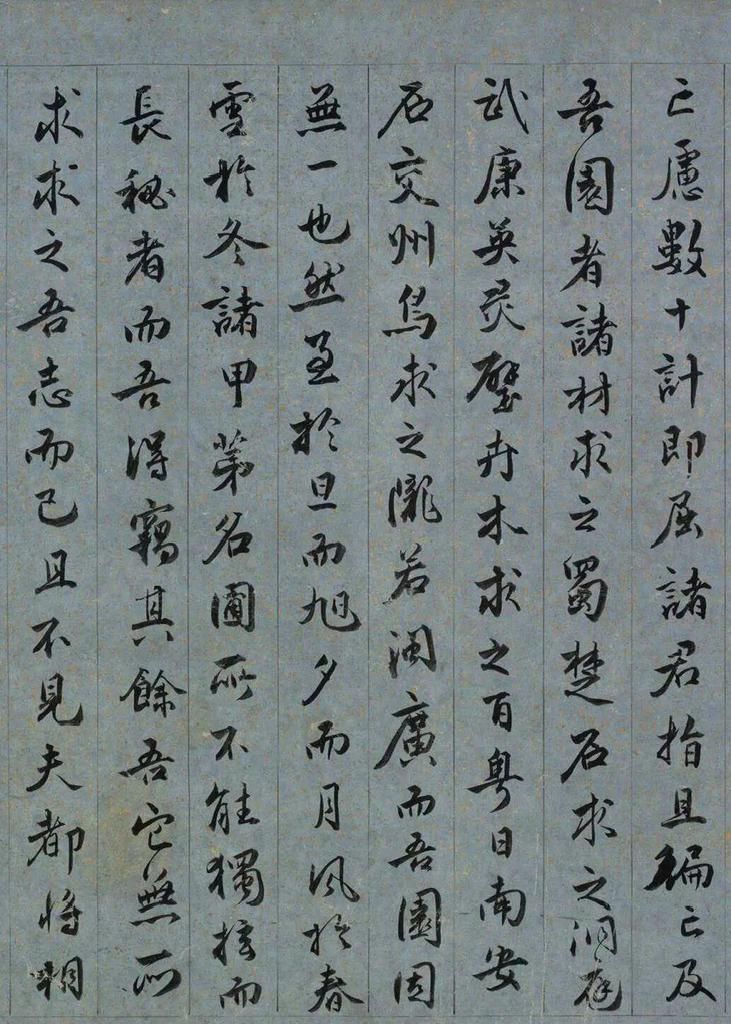 亡慮數十計即屈諸君指且徧亡及
吾園者諸材求之蜀楚石求之洞庭
武康英灵璧卉木求之百粤日南安
石交州鳥求之隴若閩廣而吾園固
無一也然至於旦而旭夕而月风於春
雪於冬諸甲第名圃所不能獨擅而
長秘者而吾得竊其餘吾它無所
求求之吾志而已且不見夫都将相